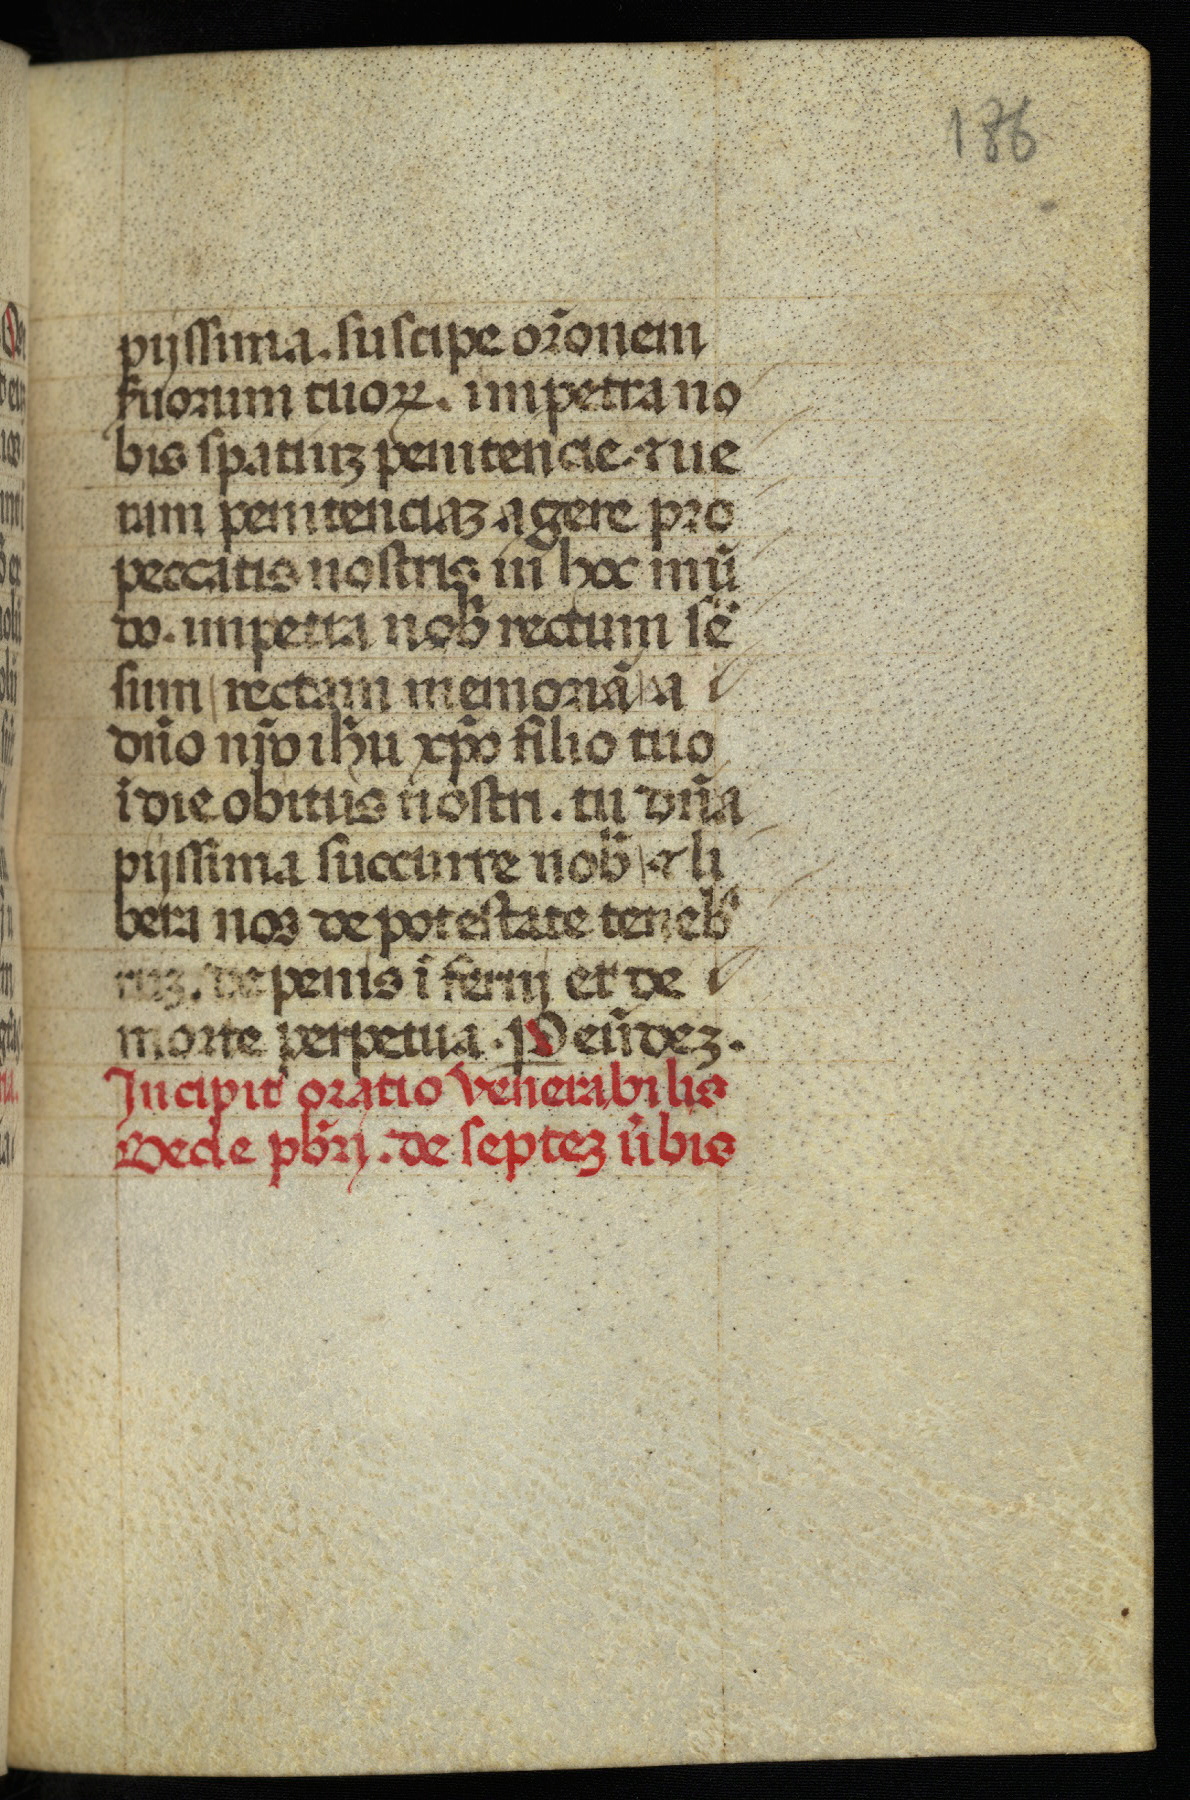 186
pijssima. suscipe or̄onem
fuorum tuoꝝ. impetra no
bis spatiuꝫ penitencie. ⁊ ue
ram penitenciaꝫ agere pro
peccatis nostris in hoc mū
do. impetra nob̄ rectum sē
sum rectam memoriā a
dn̄o nr̄o ih̄u xp̄o filio tuo
ī die obitus nostri. tu dn̄a
pijssima succurre nob̄ ⁊ li
bera nos de potestate teneb
ruꝫ. de penis ī ferni et de
morte perpetua. P eūdeꝫ.
Incipit oratio venerabilis
Bede pb̄ri. de septeꝫ ūbis